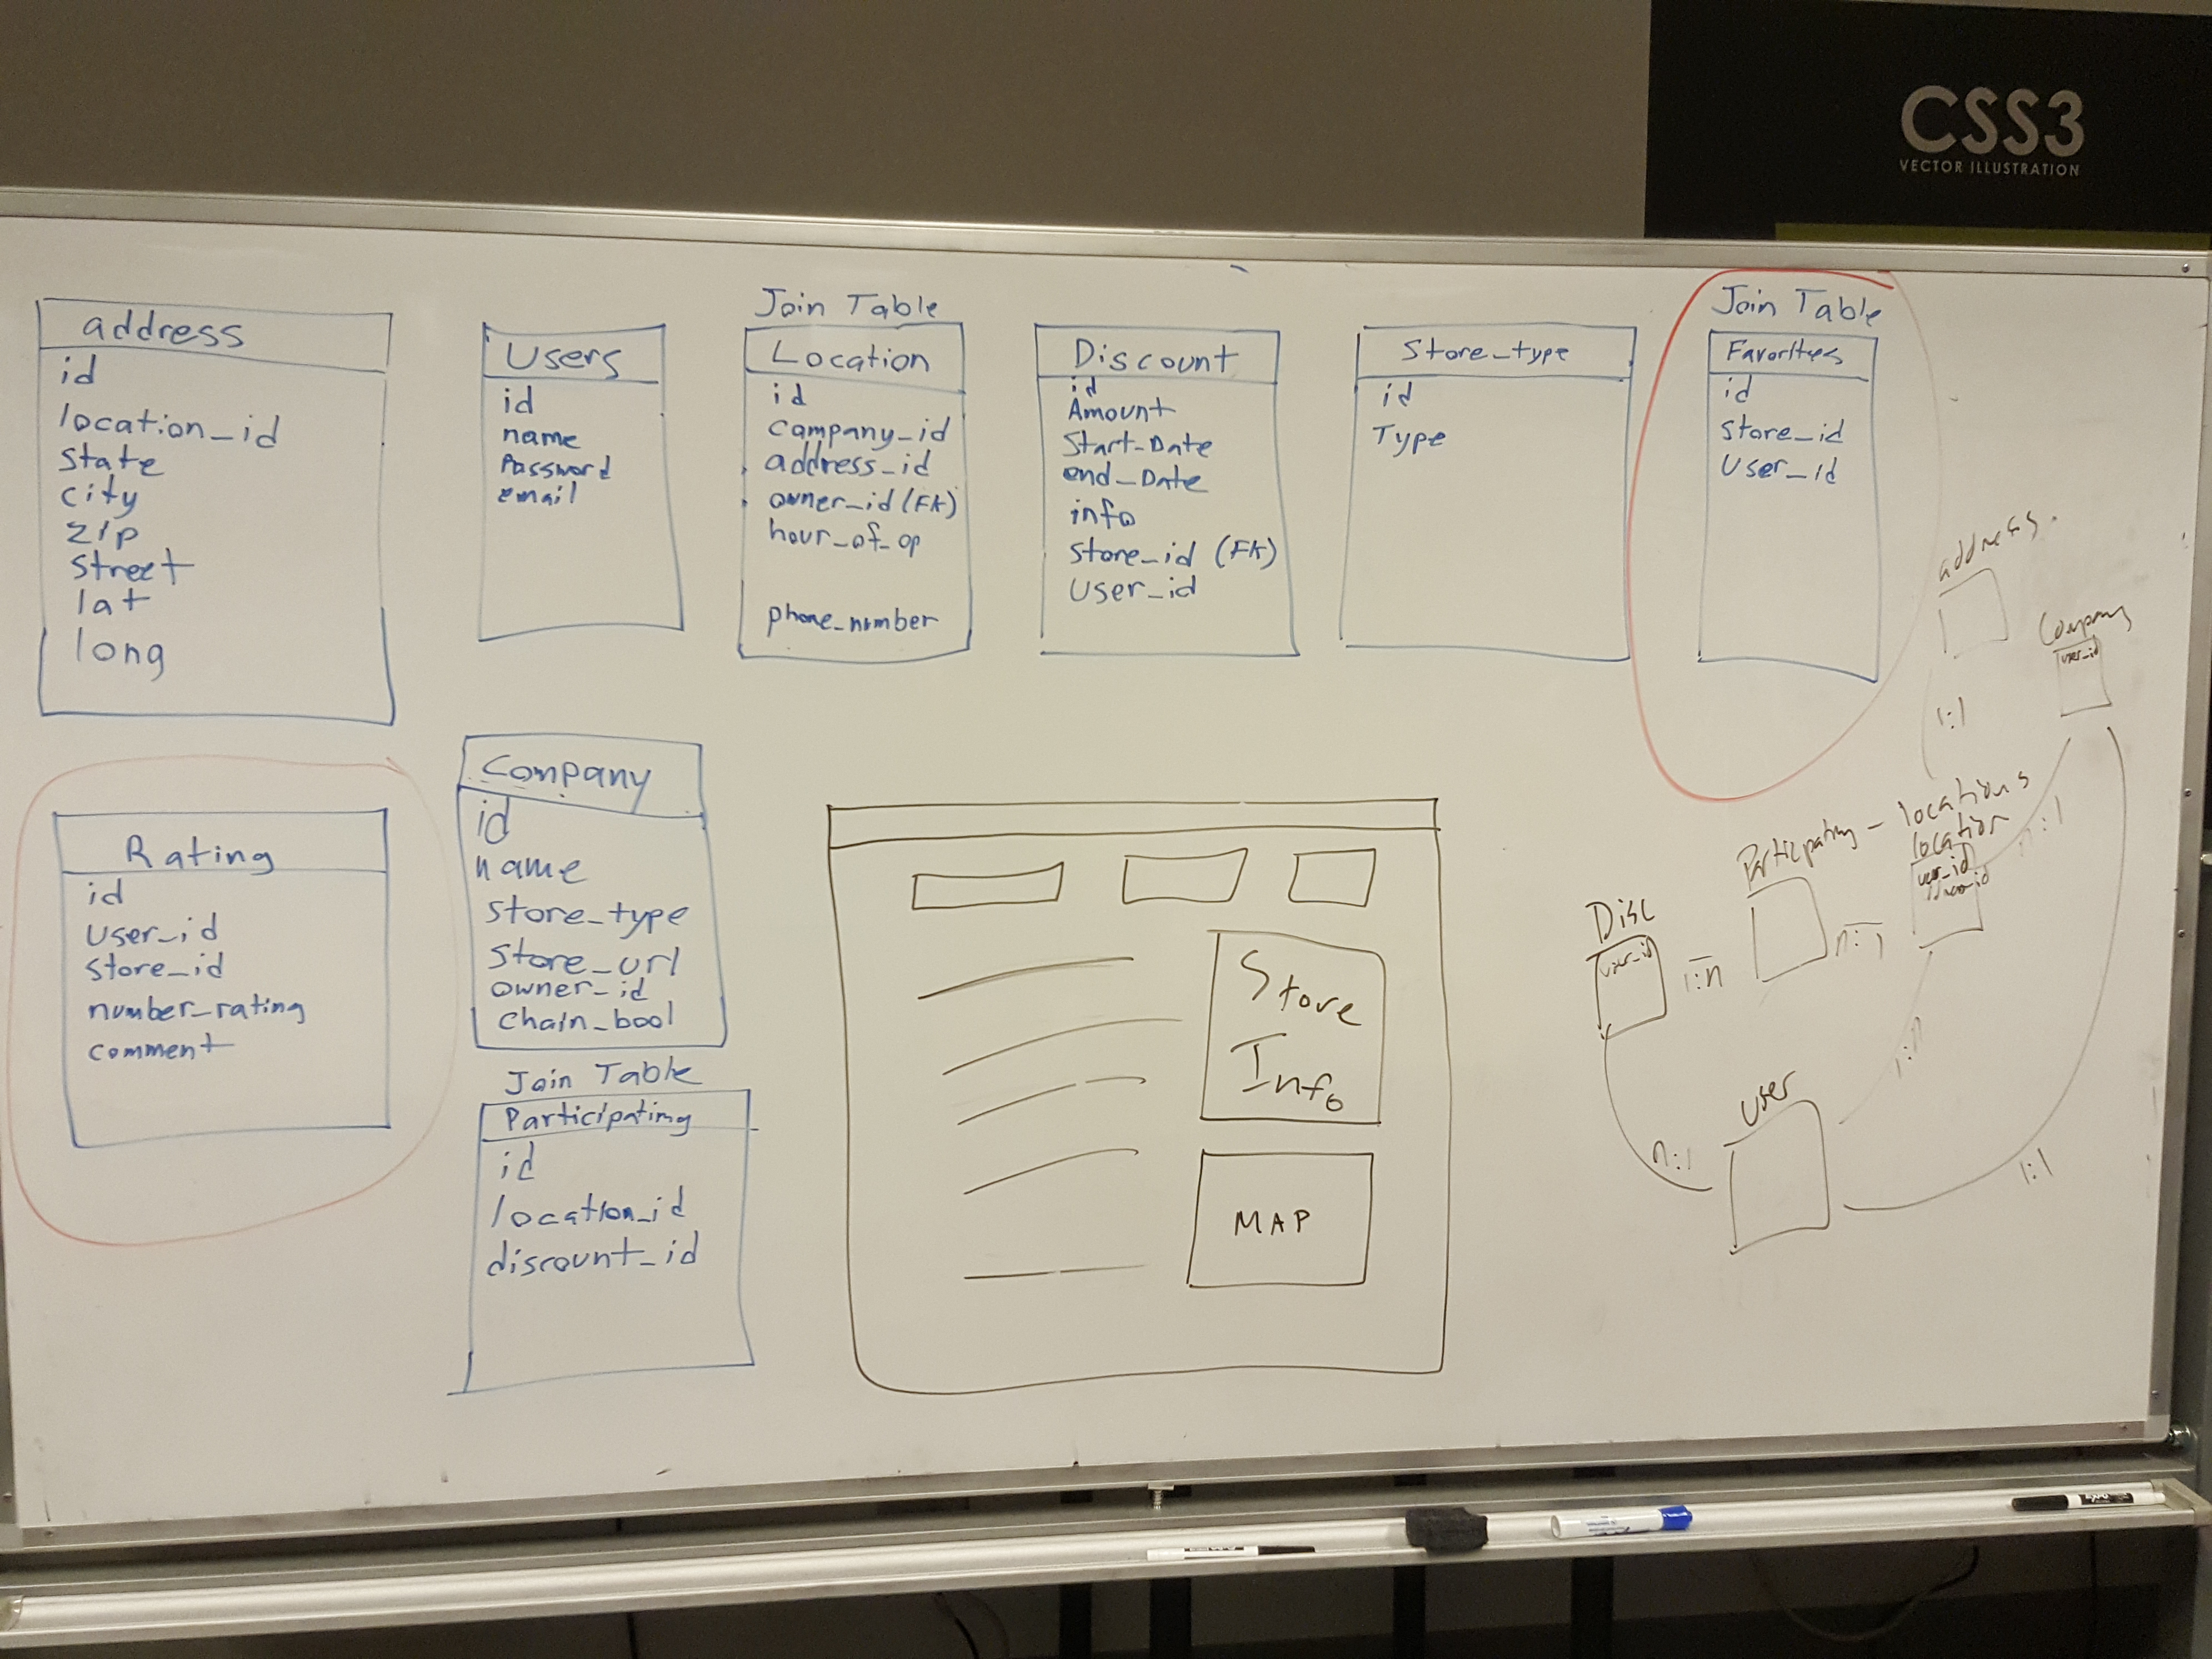 CSS3
VECTOR ILLUSTRATION
address
id
location_id
state
city
zip
street
lat
long
Users
id
name
Password
email
Join Table
Location
id
company_id
address_id
owner_id (FK)
hour_of_op
phone_number
Discount
id
Amount
Start-Date
end_Date
info
store_id (FK)
User_id
Store_type
id
Type
Join Table
Favorites
id
Store_id
User_id
Rating
id
User_id
store_id
number_rating
comment
Company
id
name
store_type
store_url
owner_id
chain_bool
Join Table
Participating
id
location_id
discount_id
Store
Info
MAP
address.
Company
user_id
1:1
Participating - locations
location
user_id
n:1
Disc
user_id
1:n
n:1
1:n
User
n:1
1:1